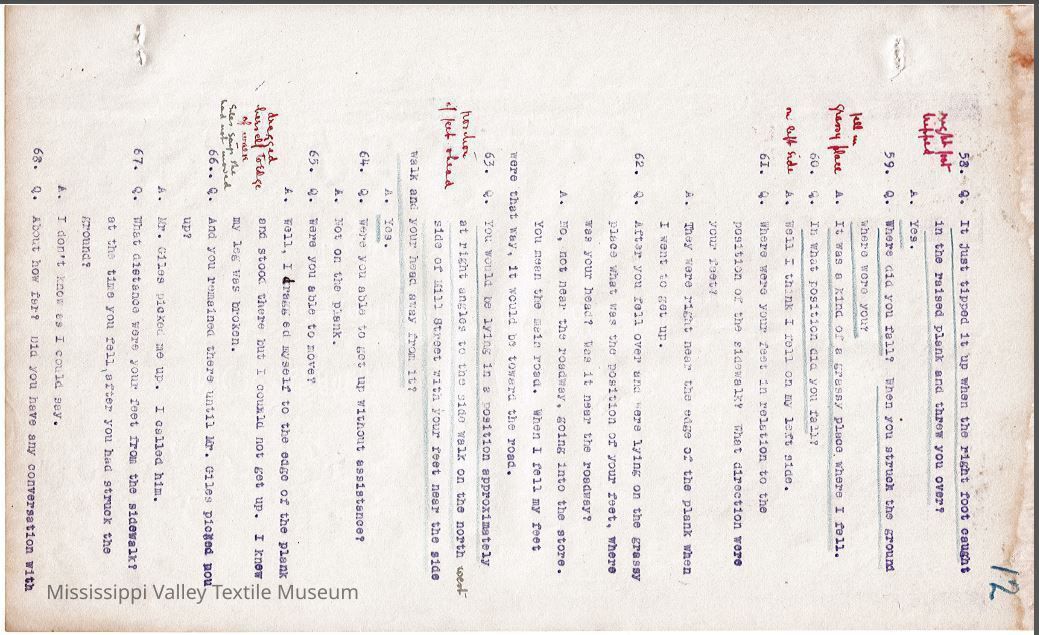 12
58. Q. It just tipped it up when the right foot caught
in the raised plank and threw you over?
right foot
tripped
A. Yes.
59. Q. Where did you fall? When you struck the ground
where were you?
fell in
grassy place
A. It was a kind of a grassy place, where I fell.
60. Q. In what position did you fall?
on left side
A. Well I think I fell on my left side.
61. Q. Where were your feet in relation to the
position of the sidewalk? What direction were
your feet?
A. They were right near the edge of the plank when
I went to get up.
62. Q. After you fell over and were lying on the grassy
place what was the position of your feet, where
was your head? Was it near the roadway?
A. No, not near the roadway, going into the store.
You mean the main road. When I fell my feet
were that way, it would be toward the road.
63. Q. You would be lying in a position approximately
position
of feet & head
at right angles to the side walk on the north west
side of Mill Street with your feet near the side
walk and your head away from it?
A. Yes.
64. Q. Were you able to get up without assistance?
A. Not on the plank.
65. Q. Were you able to move?
A. Well, I dragg ed myself to the edge of the plank
dragged
herself to edge
of walk
and stood there but I could not get up. I knew
my leg was broken.
Giles says she
had not moved
66.. Q. And you remained there until Mr. Giles picked you
up?
A. Mr. Giles picked me up. I called him.
67. Q. What distance were your feet from the sidewalk?
at the time you fell, after you had struck the
ground?
A. I don't know as I could say.
68. Q. About how far? Did you have any conversation with
Mississippi Valley Textile Museum